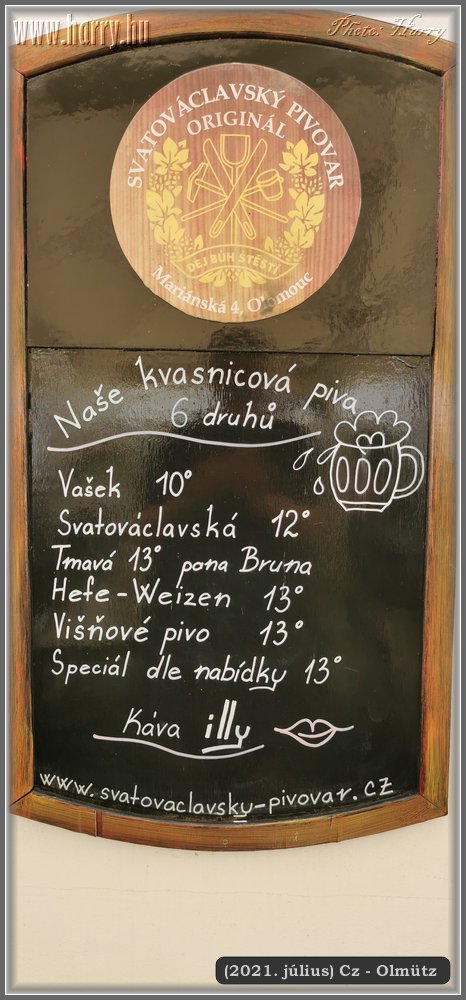 www.harry.hu
Photo: Harry
SVATOVÁCLAVSKÝ PIVOVAR
ORIGINÁL
DEJ BŮH ŠTĚSTÍ
Mariánská 4, Olomouc
Naše kvasnicová piva
6 druhů
Vašek 10°
Svatováclavská 12°
Tmavá 13° pana Bruna
Hefe-Weizen 13°
Višňové pivo 13°
Speciál dle nabídky 13°
Káva illy
www.svatovaclavsky-pivovar.cz
(2021. július) Cz - Olmütz